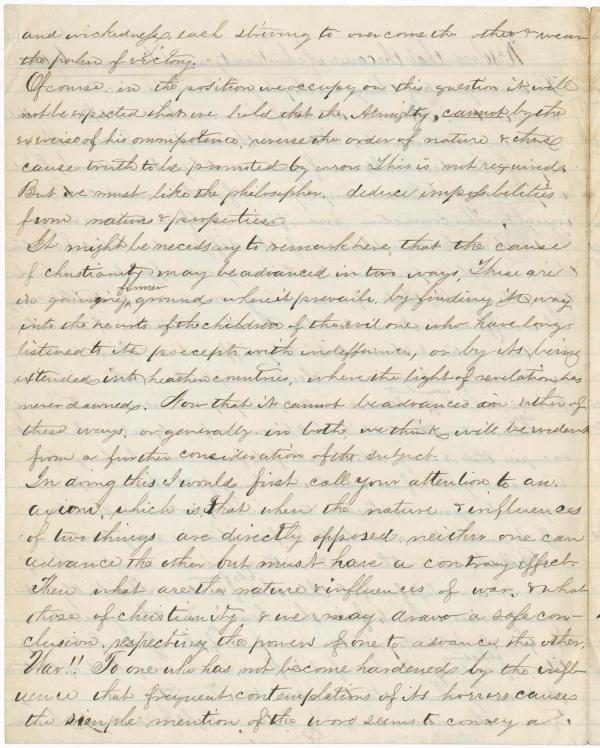 and wickedness, each striving to overcome the other & wear
the palm of victory.
Of course in the position we occupy on this question it will
not be expected that we hold that the Almighty, cannot by the
exercise of his omnipotence, reverse the order of nature & thus
cause truth to be promoted by error. This is not required.
But we must like the philosopher, deduce impossibilities
from nature & properties
It might be necessary to remark here, that the cause
of christianity may be advanced in two ways. These are
in gaining former grounds where it prevails, by finding its way
into the hearts of the children of the evil one who have long
listened to its precepts with indifference, or by its being
extended into heathen countries, where the light of revelation has
never dawned. Now that it cannot be advanced in either of
these ways, or generally in both, we think, will be evident
from a further consideration of the subject.
In doing this I would first call your attention to an
axiom, which is, that when the nature & influences
of two things are directly opposed, neither one can
advance the other but must have a contrary effect.
Then what are the nature & influences of war, & what
those of christianity, & we may draw a safe con-
clusion, respecting the power of one to advance the other.
War!! To one who has not become hardened by the infl-
uence that frequent contemplations of its horrors causes
the simple mention of the word seems to convey a